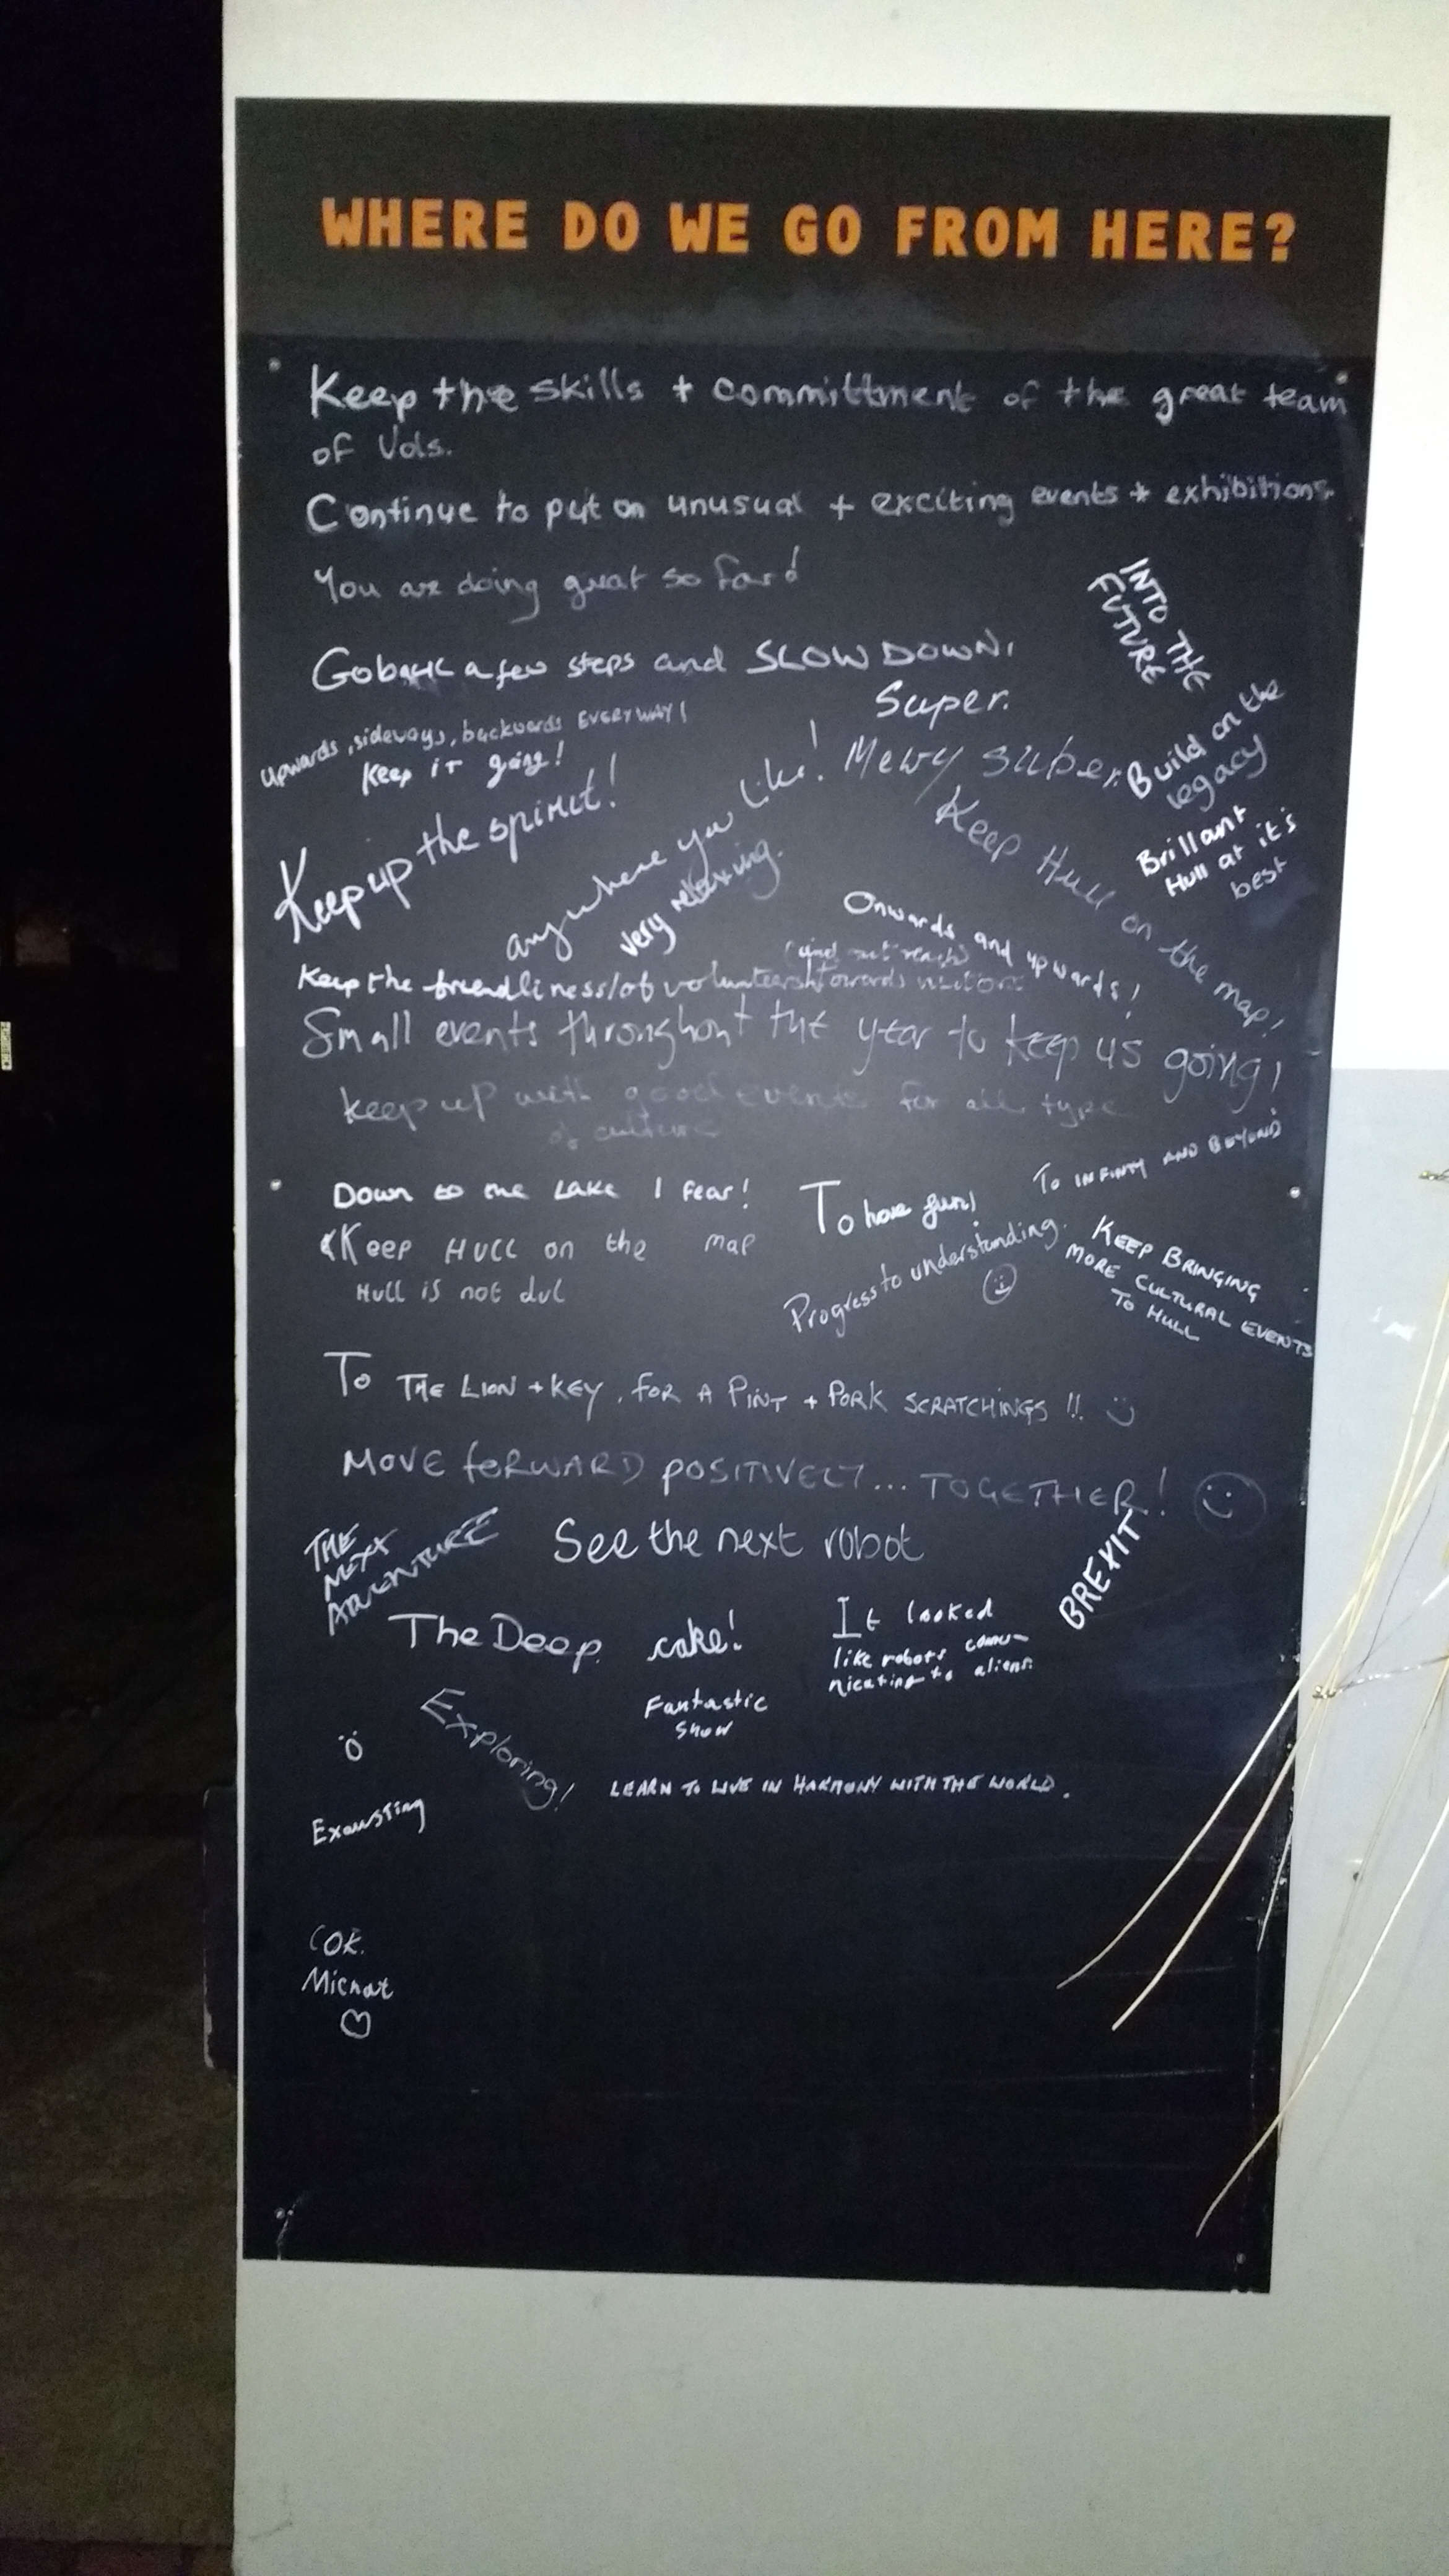 WHERE DO WE GO FROM HERE?
Keep the skills + committment of the great team
of Vols.
Continue to put on unusual + exciting events + exhibitions
You are doing great so far!
INTO THE
FUTURE
Go back a few steps and SLOW DOWN!
Super.
upwards, sideways, backwards EVERYWAY!
Keep it going!
Mewy super.
Build on the
legacy
Keep up the spirit!
anywhere you like!
very relaxing.
Keep Hull on the map!
Brillant
Hull at it's
best
Onwards and upwards!
(and out reach)
Keep the friendliness/of volunteers towards visitors
Small events throughout the year to keep us going!
Keep up with good events for all type
of culture
Down to the Lake I fear!
To have fun!
To INFINTY AND BEYOND
Keep HULL on the map
Hull is not dul
Progress to understanding.
KEEP BRINGING
MORE CULTURAL EVENTS
TO HULL
To THE LION + KEY, FOR A PINT + PORK SCRATCHINGS !!
MOVE FORWARD POSITIVELY... TOGETHER!
THE
NEXT
ADVENTURE
See the next robot
BREXIT
The Deep
cake!
It looked
like robots comu-
nicating to aliens.
Fantastic
Show
Exploring!
LEARN TO LIVE IN HARMONY WITH THE WORLD.
Exausting